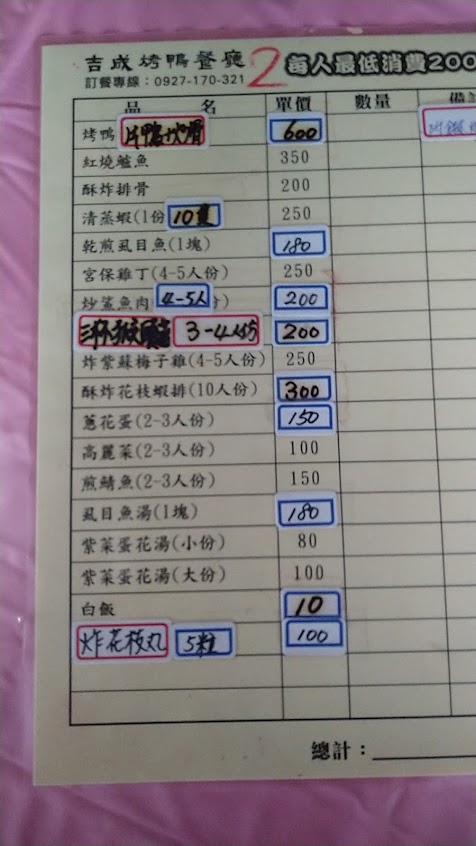 吉成烤鴨餐廳 2 每人最低消費200
訂餐專線：0927-170-321
品 名 單價 數量 備
烤鴨 片鴨 600
紅燒鱸魚 350
酥炸排骨 200
清蒸蝦(1份 10隻 250
乾煎虱目魚(1塊) 180
宮保雞丁(4-5人份) 250
炒鯊魚肉 4-5人 ) 200
三杯 3-4人份 200
炸紫蘇梅子雞(4-5人份) 250
酥炸花枝蝦排(10人份) 300
蔥花蛋(2-3人份) 150
高麗菜(2-3人份) 100
煎鯖魚(2-3人份) 150
虱目魚湯(1塊) 180
紫菜蛋花湯(小份) 80
紫菜蛋花湯(大份) 100
白飯 10
炸花枝丸 5粒 100
總計：